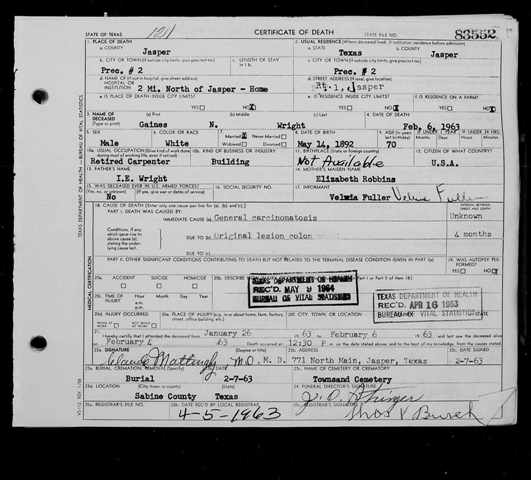 STATE OF TEXAS 1211 CERTIFICATE OF DEATH STATE FILE NO. 83552
1. PLACE OF DEATH 2. USUAL RESIDENCE (Where deceased lived. If institution: residence before admission)
a. COUNTY Jasper a. STATE Texas b. COUNTY Jasper
b. CITY OR TOWN (If outside city limits, give precinct no.) c. LENGTH OF STAY c. CITY OR TOWN (If outside city limits, give precinct no.)
Prec. # 2 Prec. # 2
d. NAME OF (If not in hospital, give street address) HOSPITAL OR INSTITUTION 2 Mi. North of Jasper - Home d. STREET ADDRESS (If rural, give location) Rt. 1, Jasper
e. IS PLACE OF DEATH INSIDE CITY LIMITS? YES NO X e. IS RESIDENCE INSIDE CITY LIMITS? YES NO X f. IS RESIDENCE ON A FARM? YES NO
3. NAME OF DECEASED (Type or print) (a) First (b) Middle (c) Last 4. DATE OF DEATH
Gaines N. Wright Feb. 6, 1963
5. SEX 6. COLOR OR RACE 7. Married X Never Married Widowed Divorced 8. DATE OF BIRTH 9. AGE
Male White May 14, 1892 70
10a. USUAL OCCUPATION 10b. KIND OF BUSINESS OR INDUSTRY 11. BIRTHPLACE (State or foreign country) 12. CITIZEN OF WHAT COUNTRY?
Retired Carpenter Building Not Available U.S.A.
13. FATHER'S NAME 14. MOTHER'S MAIDEN NAME
I.E. Wright Elizabeth Robbins
15. WAS DECEASED EVER IN U.S. ARMED FORCES? 16. SOCIAL SECURITY NO. 17. INFORMANT
No Velmia Fuller Velmia Fuller
18. CAUSE OF DEATH (Enter only one cause per line for (a), (b), and (c).) INTERVAL BETWEEN ONSET AND DEATH
PART I. DEATH WAS CAUSED BY:
IMMEDIATE CAUSE (a) General carcinomatosis Unknown
Conditions, if any which gave rise to above cause (a) stating the underlying cause last.
DUE TO (b) Original lesion colon 4 months
DUE TO (c)
PART II. OTHER SIGNIFICANT CONDITIONS CONTRIBUTING TO DEATH BUT NOT RELATED TO THE TERMINAL DISEASE CONDITION GIVEN IN PART I(a) 19. WAS AUTOPSY PERFORMED? YES NO X
20a. ACCIDENT SUICIDE HOMICIDE 20b. DESCRIBE
TEXAS DEPARTMENT OF HEALTH
REC'D MAY 9 1964
BUREAU OF VITAL STATISTICS
20c. TIME OF INJURY Hour Month Day Year
TEXAS DEPARTMENT OF HEALTH
REC'D APR 16 1963
BUREAU OF VITAL STATISTICS
20d. INJURY OCCURRED 20e. PLACE OF INJURY 20f. CITY, TOWN, OR LOCATION COUNTY STATE
21. I hereby certify that I attended the deceased from January 26 63 to February 6 63 and last saw the deceased alive
on February 4 63 Death occurred at 12:30 P m. on the date stated above, and to the best of my knowledge, from the causes stated.
22a. SIGNATURE Claude Mattingly M.D. M. D. 771 North Main, Jasper, Texas 2-7-63
23a. BURIAL, CREMATION, REMOVAL (Specify) 23b. DATE 23c. NAME OF CEMETERY OR CREMATORY
Burial 2-7-63 Townsand Cemetery
23d. LOCATION (City, town, or county) (State) 24. FUNERAL DIRECTOR'S SIGNATURE
Sabine County Texas
25a. REGISTRAR'S FILE NO. 25b. DATE REC'D BY LOCAL REGISTRAR 25c. REGISTRAR'S SIGNATURE
4-5-1963
TEXAS DEPARTMENT OF HEALTH - BUREAU OF VITAL STATISTICS
MEDICAL CERTIFICATION